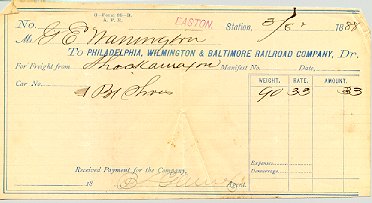 O—Form 66—B.
No. EASTON. Station, 3/6 1888
Mr. G E Warrington
To PHILADELPHIA, WILMINGTON & BALTIMORE RAILROAD COMPANY, Dr.
For Freight from Manifest No. Date,
Car No. WEIGHT. RATE. AMOUNT.
1 Bx Shoes 90 33 33
Expenses
Demurrage
Received Payment for the Company,
18 Agent.